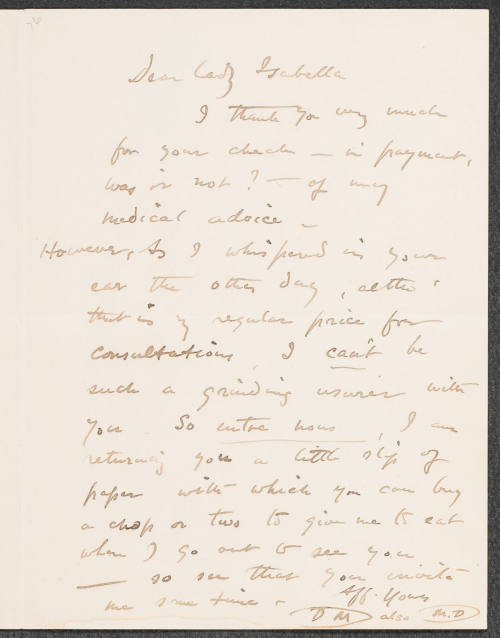 Dear Lady Isabella
I thank you very much
for your check — in payment,
was it not? — of my
medical advice —
However, as I whispered in your
ear the other day, altho'
that is my regular price for
consultations, I can't be
such a grinding usurer with
you. So entre nous, I am
returning you a little slip of
paper with which you can buy
a chop or two to give me to eat
when I go out to see you
— so see that you invite
me some time —
Aff. Yours
D M also M.D